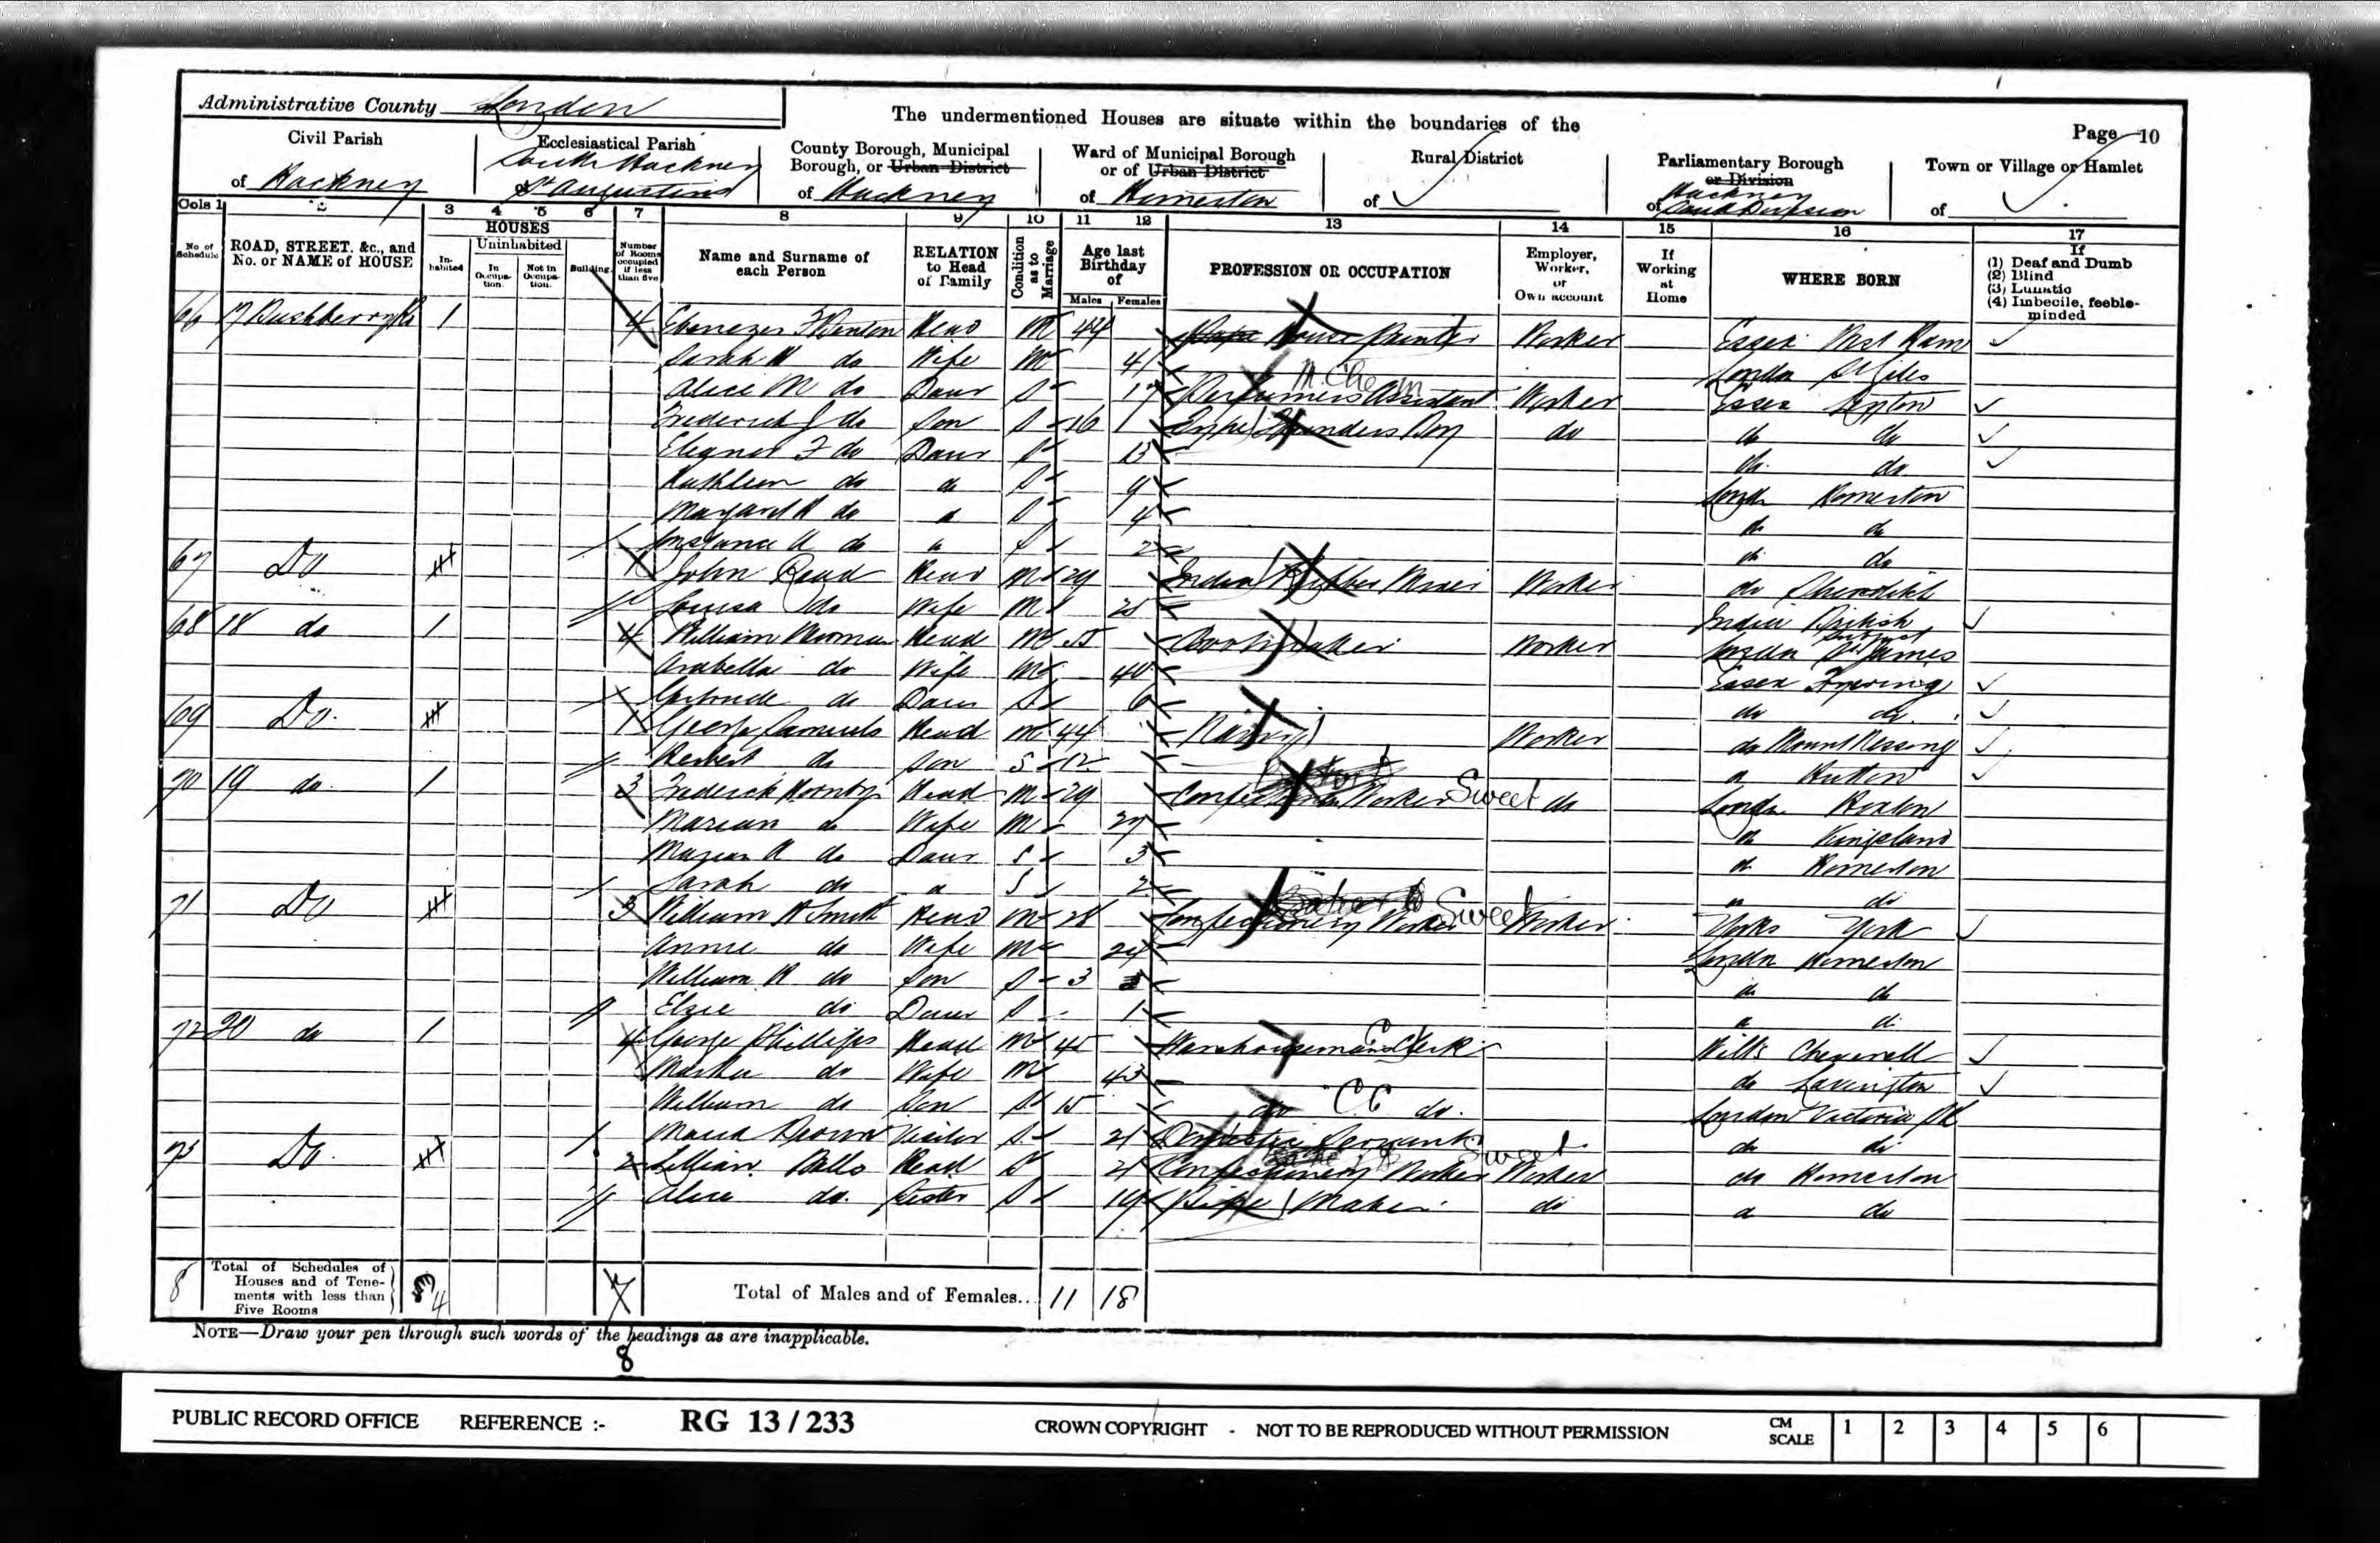 Administrative County London
The undermentioned Houses are situate within the boundaries of the
Page 10
Civil Parish
of Hackney
Ecclesiastical Parish
South Hackney
St Augustines
County Borough, Municipal
Borough, or Urban District
of Hackney
Ward of Municipal Borough
or of Urban District
of Homerton
Rural District
of
Parliamentary Borough
or Division
of Hackney
South Division
Town or Village or Hamlet
of
Cols 1 2 3 4 5 6 7 8 9 10 11 12 13 14 15 16 17
No. of Schedule
ROAD, STREET, &c., and No. or NAME of HOUSE
HOUSES
In-habited
Uninhabited
In Occupa-tion.
Not in Occupa-tion.
Building.
Number of Rooms occupied if less than five
Name and Surname of each Person
RELATION to Head of Family
Condition as to Marriage
Age last Birthday of
Males Females
PROFESSION OR OCCUPATION
Employer, Worker, or Own account
If Working at Home
WHERE BORN
If
(1) Deaf and Dumb
(2) Blind
(3) Lunatic
(4) Imbecile, feeble-minded
66 17 1 4 Ebenezer F Head M 44 House Painter Worker Essex West Ham
Sarah do Wife M 41 London St Giles
Alice M do Daur S 17 Perfumers Assistant Worker Essex Leyton
Frederick J do Son S 16 Type Founders Boy do do do
Eleanor F do Daur S 13 do do
Kathleen do do S 9 London Homerton
Margaret do do S 4 do do
Constance do S 2 do do
67 Do 1 John Read Head M 29 India Rubber Worker do Shoreditch
Louisa do Wife M 25 India British Subject
68 18 do 1 4 William Head M 55 Boot Maker Worker London St James
Arabella do Wife M 40 Essex
Gertrude do Daur S 6 do do
69 Do 1 George Samuels Head M 44 Navvy Worker do Mount Nessing
Herbert do Son S 12 do Hutton
70 19 do 1 3 Frederick Hornby Head M 29 Confectionery Worker Sweet do London Hoxton
Marian do Wife M 27 do Kingsland
Marian do Daur S 3 do Homerton
Sarah do do S 2 do do
71 Do 3 William H Smith Head M 28 Confectionery Worker Sweet Worker Yorks York
Annie do Wife M 24 London Homerton
William H do Son S 3 do do
Elsie do Daur S 1 do do
72 20 do 1 4 George Phillips Head M 45 Warehouseman Clerk Wilts Cheverell
Martha do Wife M 43 do Lavington
William do Son S 15 do CC do London Victoria Pk
Maud Brown Visitor S 21 Domestic Servant do do
73 Do 2 Lillian Head S 21 Confectionery Worker Sweet Worker do Homerton
Alice do Sister S 19 Maker do do do
8
Total of Schedules of Houses and of Tene-ments with less than Five Rooms
4
7
Total of Males and of Females... 11 18
NOTE—Draw your pen through such words of the headings as are inapplicable.
8
PUBLIC RECORD OFFICE REFERENCE :- RG 13 / 233 CROWN COPYRIGHT - NOT TO BE REPRODUCED WITHOUT PERMISSION CM SCALE 1 2 3 4 5 6